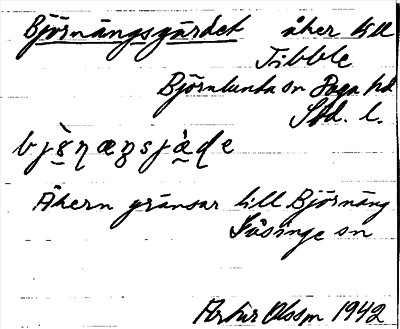 Björnängsgärdet åker till
Tibble
Björnlunda sn Daga hd
Söd. l.
Åkern gränsar till Björnäng
Gåsinge sn
Artur Olsson 1942